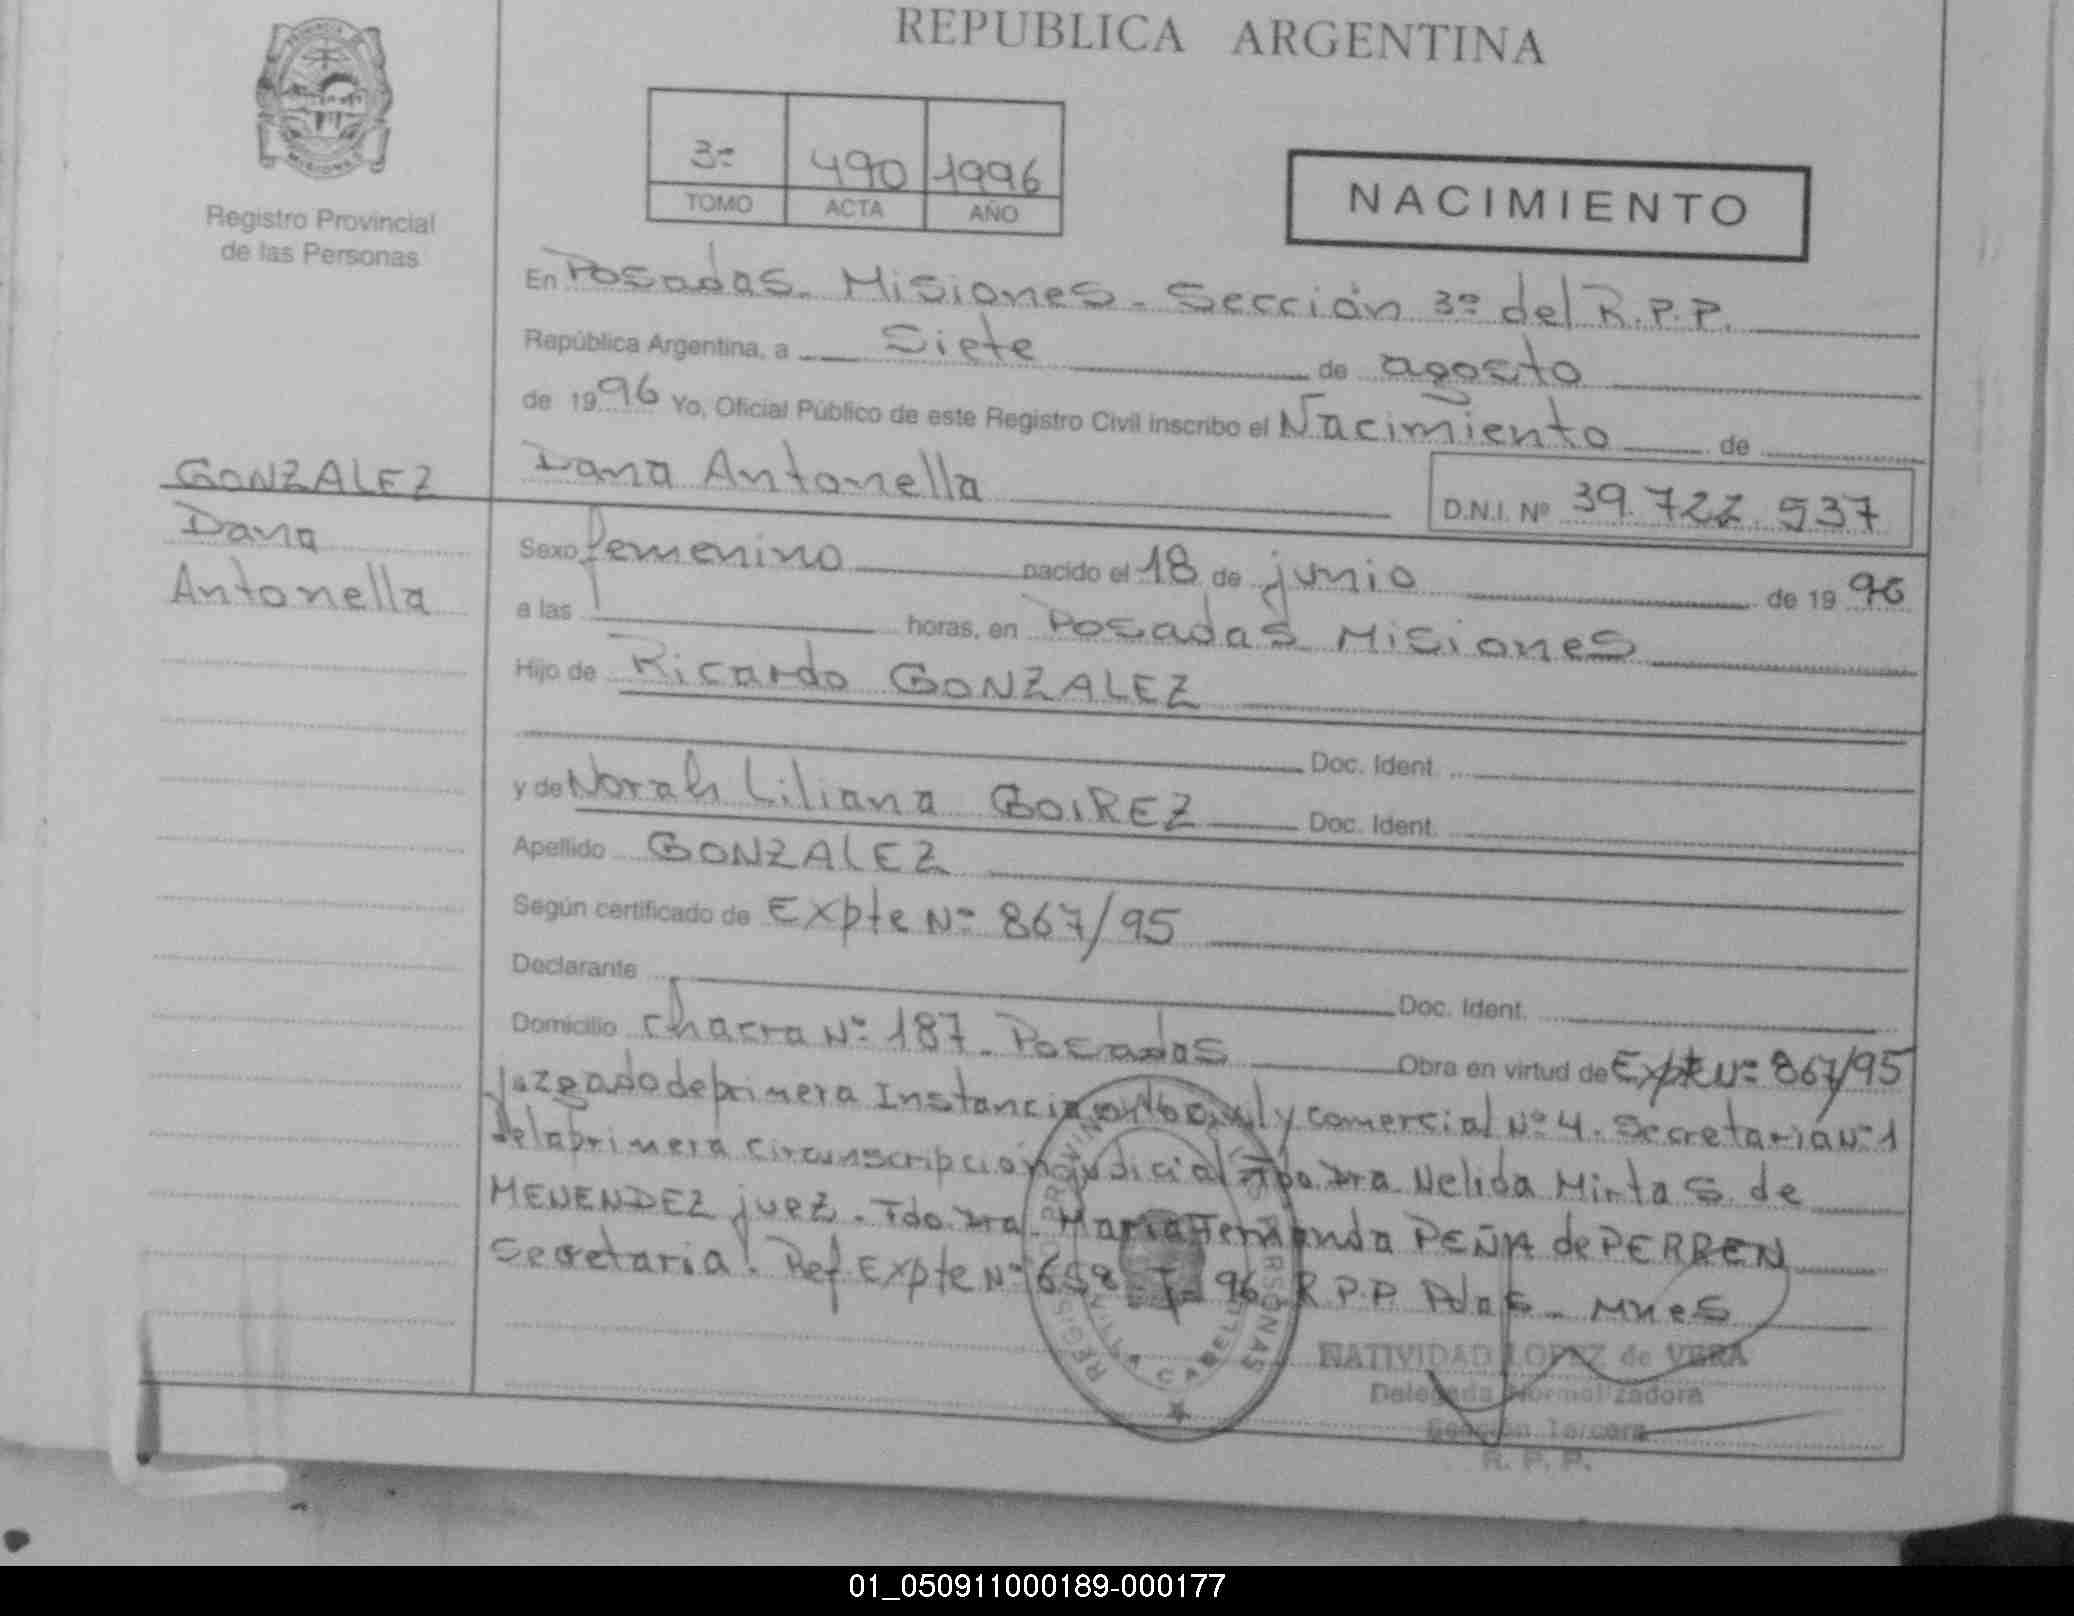 REPUBLICA ARGENTINA
MISIONES
Registro Provincial
de las Personas
3º 490 1996
TOMO ACTA AÑO
NACIMIENTO
En Posadas. Misiones. Sección 3º del R.P.P.
República Argentina, a siete de agosto
de 1996 Yo, Oficial Público de este Registro Civil inscribo el Nacimiento de
GONZALEZ
Dana
Antonella
Dana Antonella
D.N.I. Nº 39.722.937
Sexo femenino nacido el 18 de junio de 1996
a las horas, en Posadas Misiones
Hijo de Ricardo GONZALEZ
Doc. Ident.
y de Norah Liliana GOIREZ Doc. Ident.
Apellido GONZALEZ
Según certificado de Expte Nº 867/95
Declarante Doc. Ident.
Domicilio chacra Nº 187. Posadas Obra en virtud de Expte Nº 867/95
juzgado de primera Instancia en lo civil y comercial Nº 4. Secretaria Nº 1
de la primera circunscripcion judicial Fdo. Dra Nelida Mirta S. de
MENENDEZ juez. Fdo. Dra. Maria Fernanda PEÑA de PERREN
Secretaria. Ref. Expte Nº 658 96 R.P.P. Pdas. Mnes
NATIVIDAD LOPEZ de VERA
Delegada Normalizadora
Sección Tercera
R. P. P.
01_050911000189-000177